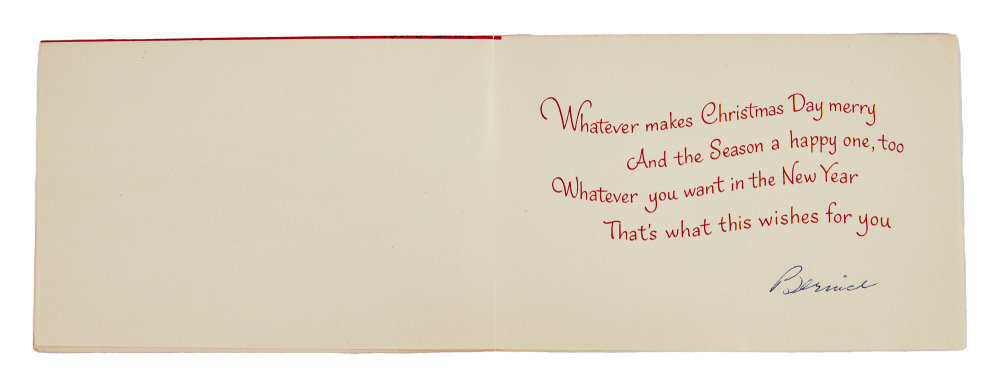 Whatever makes Christmas Day merry
And the Season a happy one, too
Whatever you want in the New Year
That's what this wishes for you
Bernice